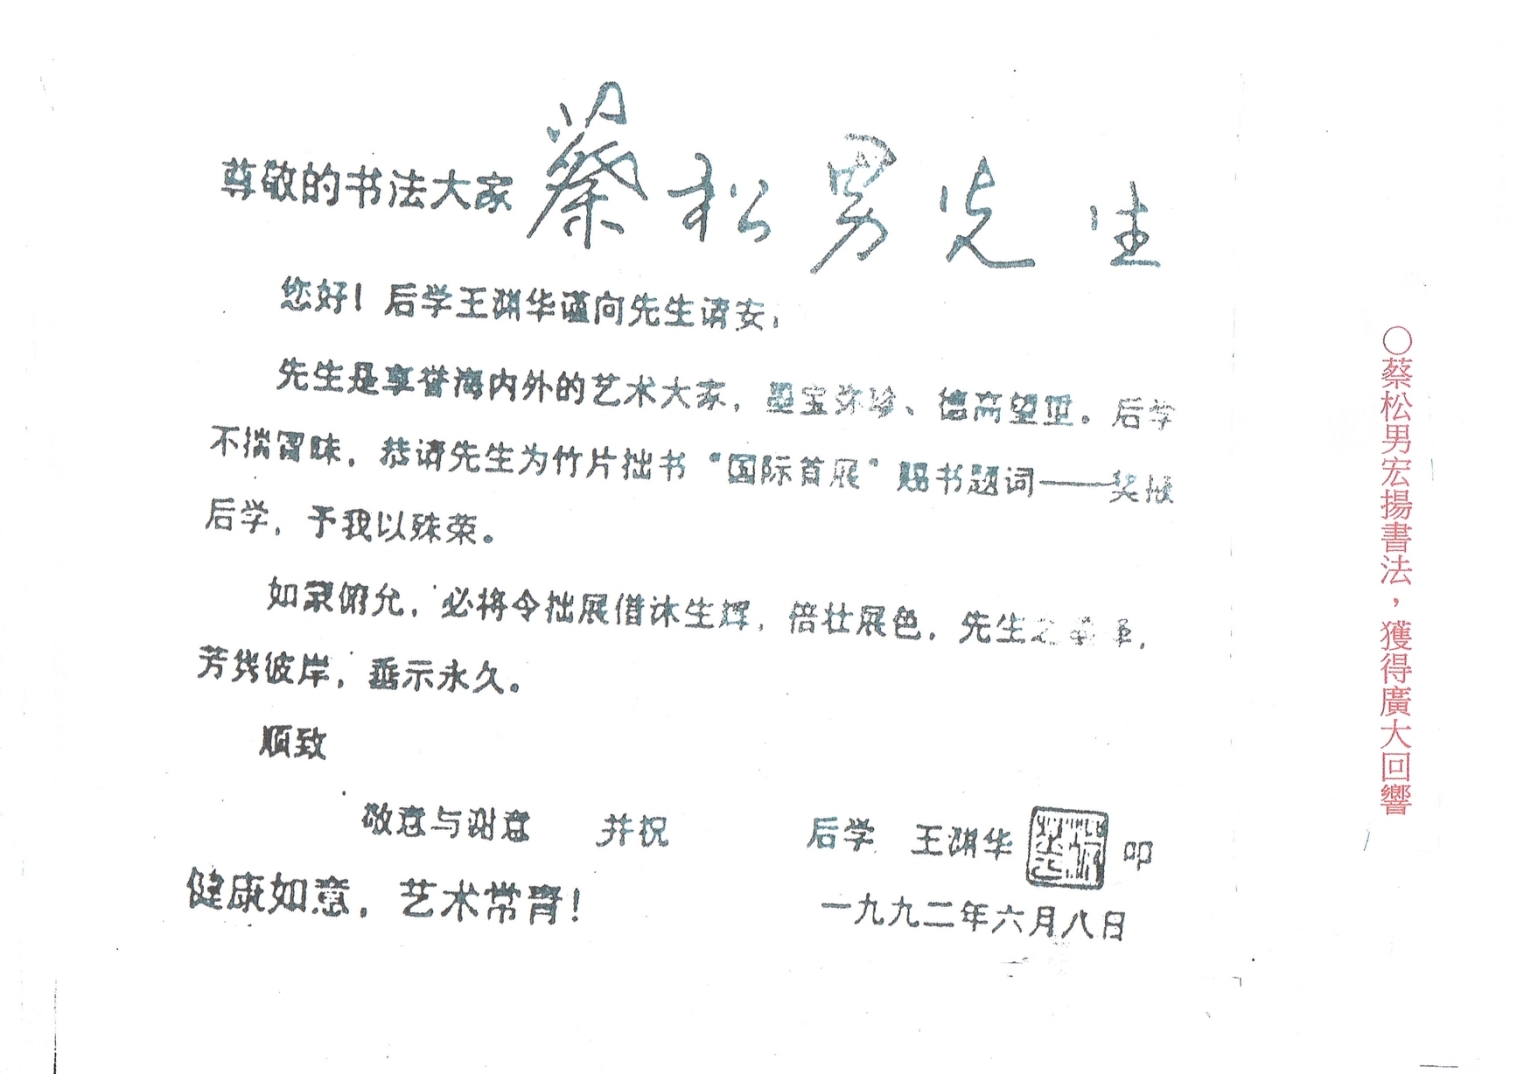 尊敬的书法大家 蔡松男先生
您好！后学王渊华谨向先生请安，
先生是享誉海内外的艺术大家，墨宝弥珍、德高望重。后学
不揣冒昧，恭请先生为竹片拙书“国际首展”赐书题词——奖掖
后学，予我以殊荣。
如蒙俯允，必将令拙展借沐生辉，倍壮展色，先生之
芳彼岸，垂示永久。
顺致
敬意与谢意 并祝
健康如意，艺术常青！
后学 王渊华 叩
一九九二年六月八日
○蔡松男宏揚書法，獲得廣大回響